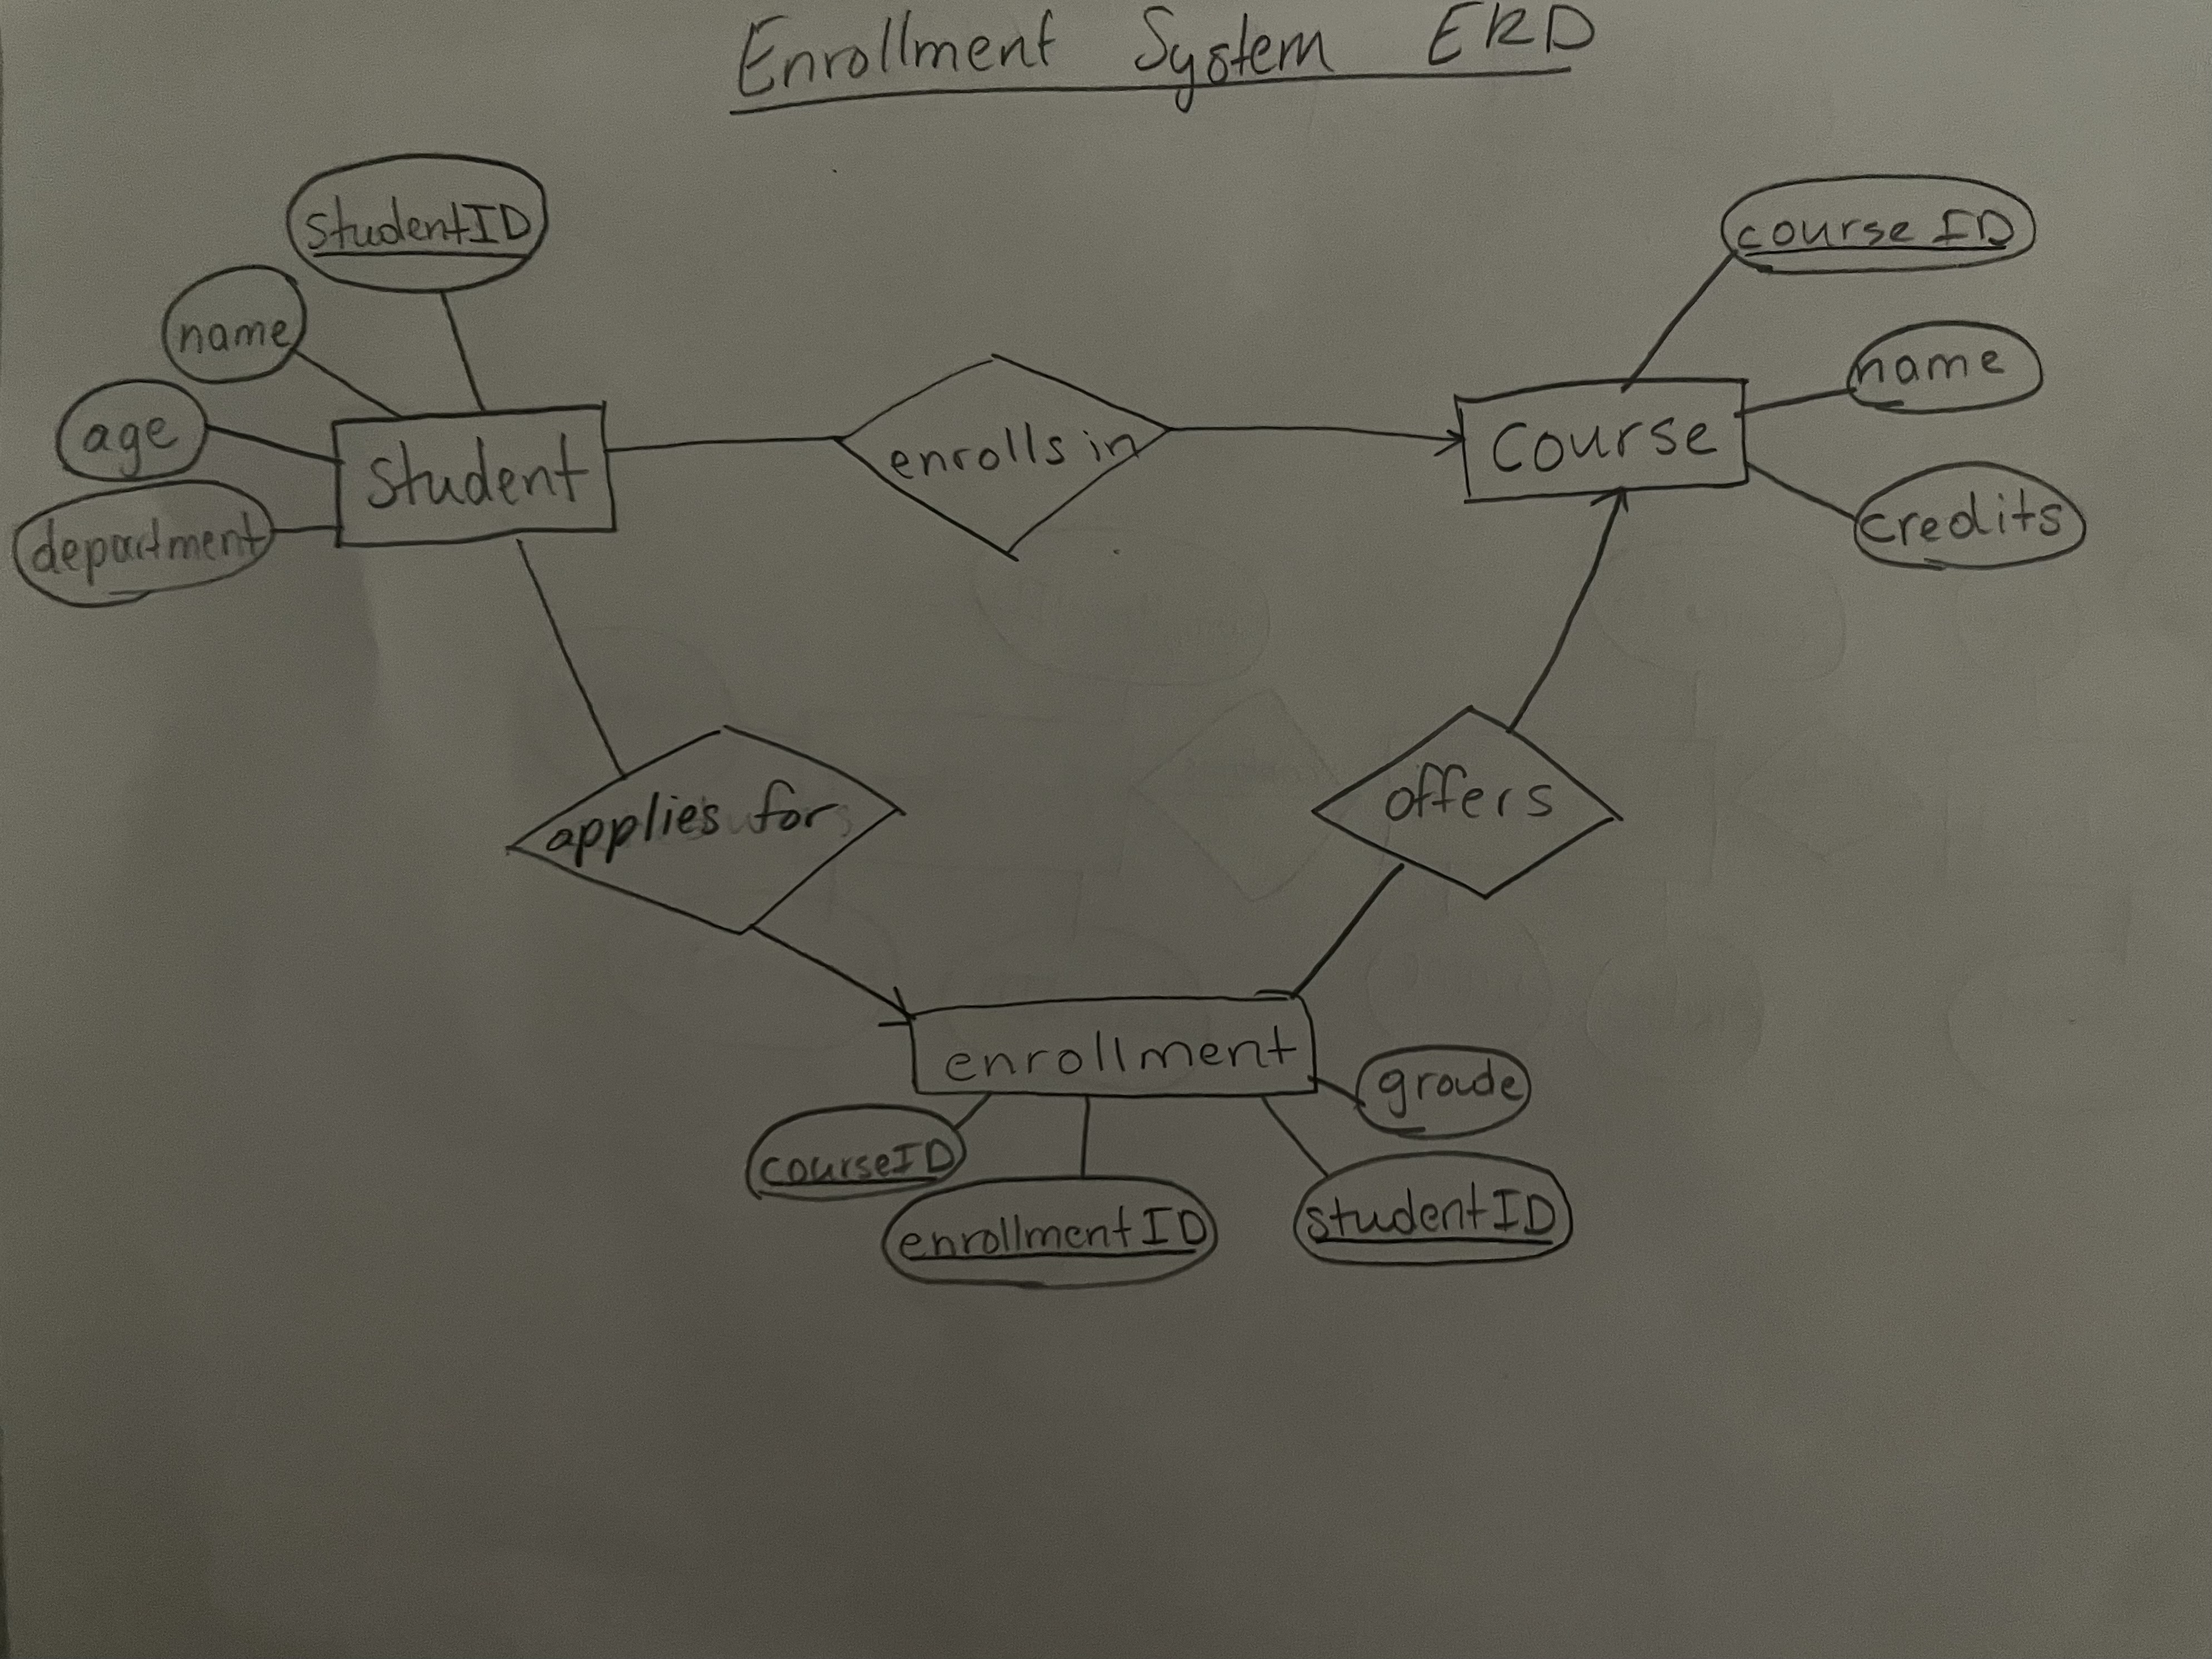 Enrollment System ERD
studentID
name
age
department
student
enrolls in
course
course ID
name
credits
applies for
offers
enrollment
grade
courseID
enrollmentID
studentID